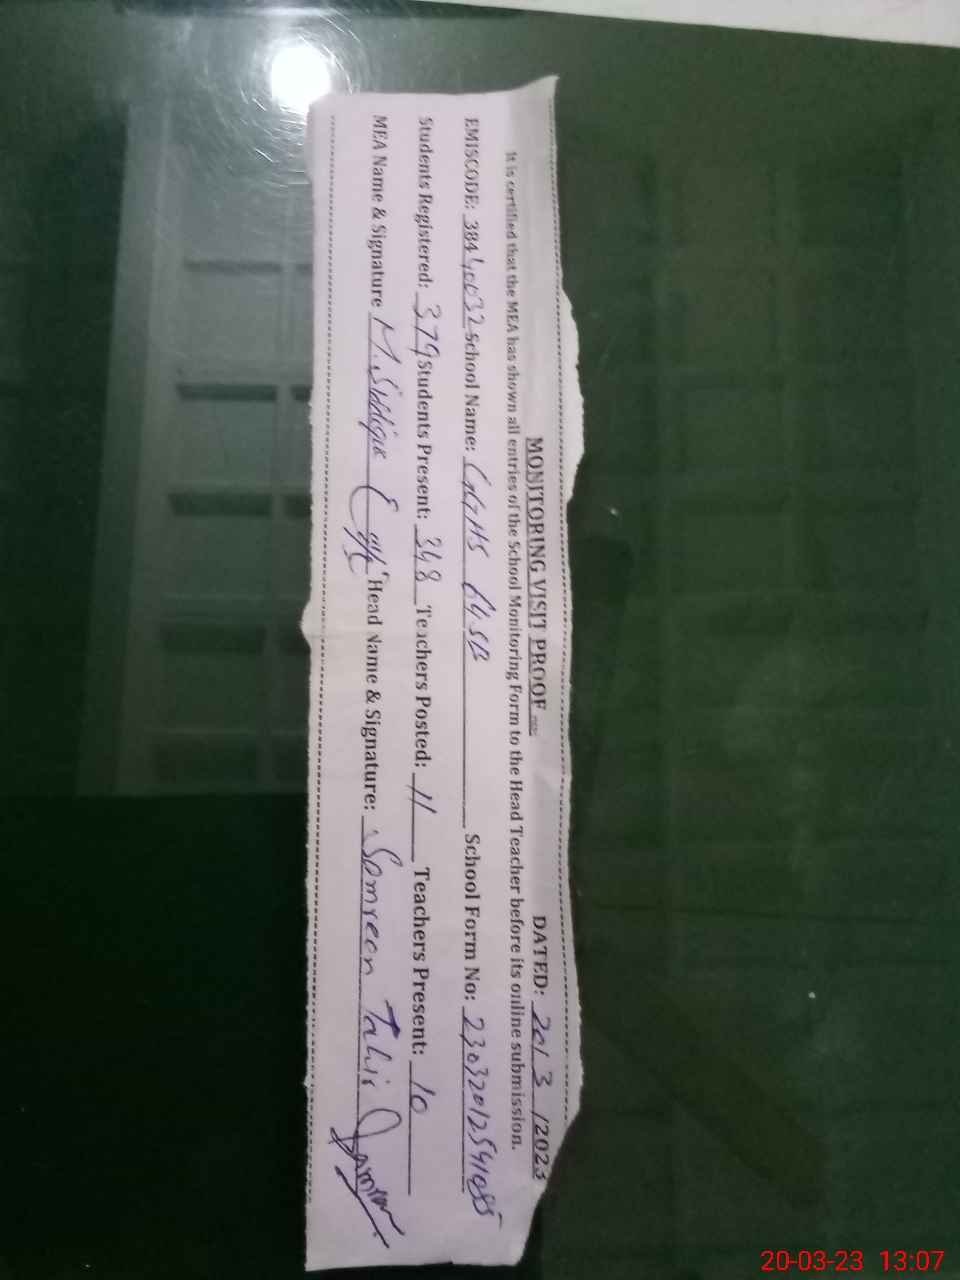 MONITORING VISIT PROOF DATED: 20/ 3 /2023
It is certified that the MEA has shown all entries of the School Monitoring Form to the Head Teacher before its online submission.
EMISCODE: 38440032 School Name: GGHS 64 SB School Form No: 23032012541085
Students Registered: 379 Students Present: 348 Teachers Posted: 11 Teachers Present: 10
MEA Name & Signature M. Siddique Head Name & Signature: Samreen Tahir
20-03-23 13:07